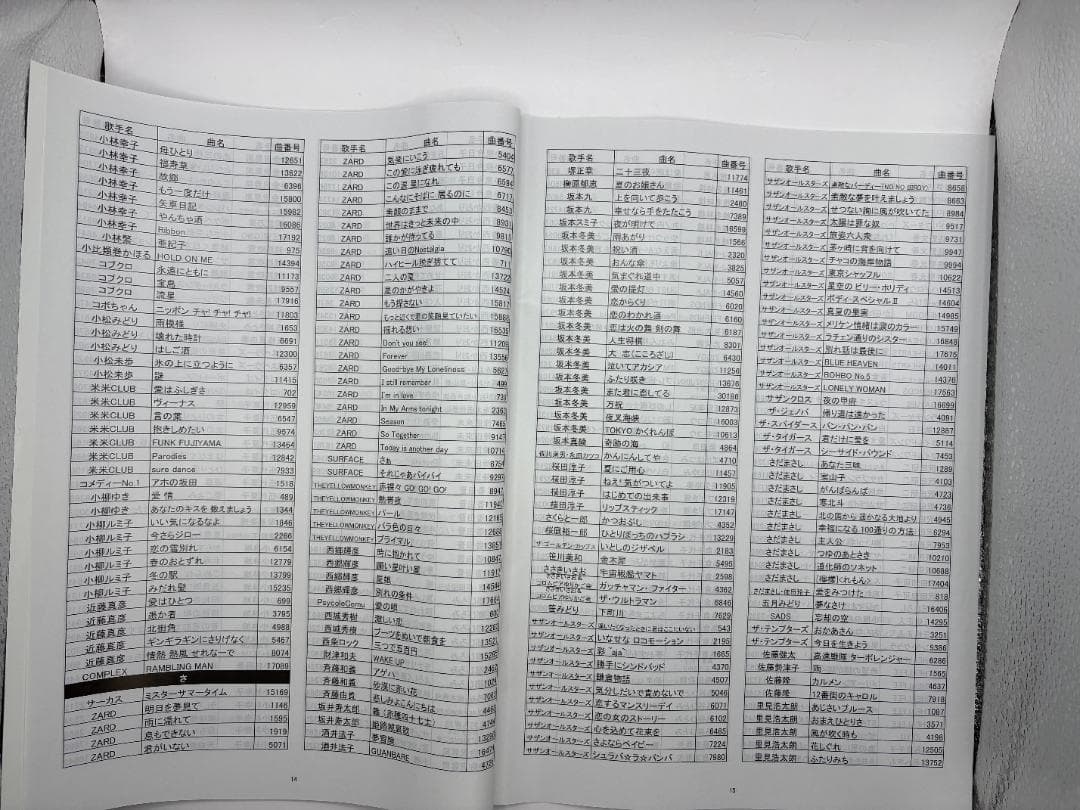 歌手名 曲名 曲番号
小林幸子 母ひとり 12651
小林幸子 福寿草 13622
小林幸子 故郷 6396
小林幸子 もう一度だけ 15800
小林幸子 矢車日記 15982
小林幸子 やんちゃ酒 16086
小林幸子 Ribbon 17192
小林繁 亜紀子 975
小比類巻かほる HOLD ON ME 14394
コブクロ 永遠にともに 11173
コブクロ 宝島 9557
コブクロ 流星 17916
コボちゃん ニッポン チャ! チャ! チャ! 11803
小松みどり 雨模様 1653
小松みどり 壊れた時計 6691
小松みどり はしご酒 12300
小松未歩 氷の上に立つように 6357
小松未歩 謎 11415
米米CLUB 愛はふしぎさ 702
米米CLUB ヴィーナス 12959
米米CLUB 言の葉 6547
米米CLUB 抱きしめたい 9574
米米CLUB FUNK FUJIYAMA 13464
米米CLUB Parodies 12842
米米CLUB sure dance 7933
コメディーNo.1 アホの坂田 1518
小柳ゆき 愛情 489
小柳ゆき あなたのキスを 数えましょう 1344
小柳ルミ子 いい気になるなよ 1846
小柳ルミ子 今さらジロー 2266
小柳ルミ子 恋の雪別れ 6154
小柳ルミ子 春のおとずれ 12779
小柳ルミ子 冬の駅 13799
小柳ルミ子 みだれ髪 15235
近藤真彦 愛はひとつ 699
近藤真彦 愚か者 3765
近藤真彦 北街角 4988
近藤真彦 ギンギラギンにさりげなく 5467
近藤真彦 情熱 熱風 せれなーで 8074
COMPLEX RAMBLING MAN 17089
さ
サーカス ミスターサマータイム 15169
ZARD 明日を夢見て 1146
ZARD 雨に濡れて 1595
ZARD 息もできない 1919
ZARD 君がいない 5071
14
歌手名 曲名 曲番号
ZARD 気楽に行こう 5404
ZARD この愛に泳ぎ疲れても 6577
ZARD この涙 星になれ
ZARD こんなにそばに 居るのに
ZARD 素顔のままで
ZARD 世界はきっと未来の中
ZARD 誰かが待ってる
ZARD 遠い日のNostalgia
ZARD ハイヒール脱ぎ捨てて
ZARD 二人の夏
ZARD 星のかがやきよ
ZARD もう探さない
ZARD もっと近くで君の笑顔見ていたい
ZARD 揺れる想い
ZARD Don't you see!
ZARD Forever
ZARD Good-bye My Loneliness
ZARD I still remember
ZARD I'm in love
ZARD In My Arms tonight
ZARD Season
ZARD So Together
ZARD Today is another day
SURFACE さぁ
SURFACE それじゃあバイバイ
THEYELLOWMONKEY 赤裸々 GO! GO! GO!
THEYELLOWMONKEY 熱帯夜
THEYELLOWMONKEY パール
THEYELLOWMONKEY バラ色の日々
THEYELLOWMONKEY プライマル
西郷輝彦 時に抱かれて
西郷輝彦 願い星叶い星
西郷輝彦 星娘
西郷輝彦 別れの条件
PsycoleCemu 愛の唄
西城秀樹 激しい恋
西城秀樹 ブーツをぬいで朝食を
西条ロック 三つで五百円
財津和夫 WAKE UP
斉藤和義 アゲハ
斉藤和義 砂漠に赤い花
斉藤由貴 悲しみよこんにちは
坂井寿太郎
坂井寿太郎
酒井法子 夢冒険
酒井法子 GUANBARE
歌手名 曲名 曲番号
堺正章 二十三夜 11774
榊原郁恵 夏のお嬢さん 11461
坂本九 上を向いて歩こう 2480
坂本九 幸せなら手をたたこう 7389
坂本スミ子 夜が明けて 16599
坂本冬美 雨あがり 1566
坂本冬美 祝い酒 2320
坂本冬美 おんな傘 3825
坂本冬美 気まぐれ道中 5057
坂本冬美 蛍の提灯 14560
坂本冬美 恋からくり 6020
坂本冬美 恋のわかれ道 6160
坂本冬美 恋は火の舞 剣の舞 6187
坂本冬美 人生将棋 8301
坂本冬美 大 志 (こころざし) 6430
坂本冬美 泣いてアカシア 11256
坂本冬美 ふたり咲き 13676
坂本冬美 また君に恋してる 30186
坂本冬美 万祝 12873
坂本冬美 夜叉海峡 16003
坂本冬美 TOKYO かくれんぼ 10613
坂本真綾 奇跡の海 4864
かんにんしてや 4710
桜田淳子 夏にご用心 11457
桜田淳子 ねえ!気がついてよ 11905
桜田淳子 はじめての出来事 12319
桜田淳子 リップスティック 17147
さくらと一郎 かつおぶし 4352
桜庭裕一郎 ひとりぼっちのハブラシ 13229
ザ・ゴールデン・カップス いとしのジザベル 2183
笹川美和 金木犀 5495
ささきいさお 宇宙戦艦ヤマト 2598
ガッチャマン・ファイター 4362
ザ・ウルトラマン 6846
笹みどり 下町川 7622
サザンオールスターズ 逢いたくなったときに君はここにいない 543
サザンオールスターズ いなせな ロコモーション 2195
サザンオールスターズ 彩 ~aja~ 1665
サザンオールスターズ 勝手にシンドバッド 4370
サザンオールスターズ 鎌倉物語 4507
サザンオールスターズ 気分しだいで責めないで 5046
サザンオールスターズ 恋するマンスリーデイ 6071
サザンオールスターズ 恋の女のストーリー 6102
サザンオールスターズ 心を込めて花束を 6465
サザンオールスターズ さよならベイビー 7224
サザンオールスターズ シュラバ☆ラ☆バンバ 7980
歌手名 曲名 曲番号
サザンオールスターズ 素敵なバーディー(NO NO BIRDY) 8658
サザンオールスターズ 素敵な夢を叶えましょう 8663
サザンオールスターズ せつない胸に風が吹いてた 8984
サザンオールスターズ 太陽は罪な奴 9517
サザンオールスターズ 旅姿六人衆 9731
サザンオールスターズ 茅ヶ崎に背を向けて 9947
サザンオールスターズ チャコの海岸物語 9994
サザンオールスターズ 東京シャッフル 10622
サザンオールスターズ 星空のビリー・ホリディ 14513
サザンオールスターズ ボディ・スペシャルⅡ 14604
サザンオールスターズ 真夏の果実 14985
サザンオールスターズ メリケン情緒は涙のカラー 15749
サザンオールスターズ ラチエン通りのシスター 16848
サザンオールスターズ 別れ話は最後に 17675
サザンオールスターズ BLUE HEAVEN 14011
サザンオールスターズ BOHBO No.5 14376
サザンオールスターズ LONELY WOMAN 17563
サザンクロス 夜の甲府 16099
ザ・ジェノバ 帰り道は遠かった 4081
ザ・スパイダース バン・バン・バン 12887
ザ・タイガース 君だけに愛を 5114
ザ・タイガース シーサイド・バウンド 7453
さだまさし あなた三昧 1289
さだまさし 案山子 4103
さだまさし がんばらんば 4723
さだまさし 寒北斗 4736
さだまさし 北の国から 遥かなる大地より 4945
さだまさし 幸福になる 100通りの方法 6294
さだまさし 主人公 7953
さだまさし つゆのあとさき 10210
さだまさし 道化師のソネット 10698
さだまさし (檸檬)<れもん> 17404
さだまさし・佐田玲子 愛をみつけた 818
五月みどり 夢なさけ 16406
SADS 忘却の空 14295
ザ・テンプターズ おかあさん 3251
ザ・テンプターズ 今日を生きよう 5386
佐藤健太 高速戦隊 ターボレンジャー 6286
佐藤勢津子 雨 1565
佐藤隆 カルメン 4637
佐藤隆 12番街のキャロル 7918
里見浩太朗 あじさいブルース 1087
里見浩太朗 おまえひとりさ 3571
里見浩太朗 風が吹く時も 4196
里見浩太朗 花しぐれ 12505
里見浩太朗 ふたりみち 13752
15